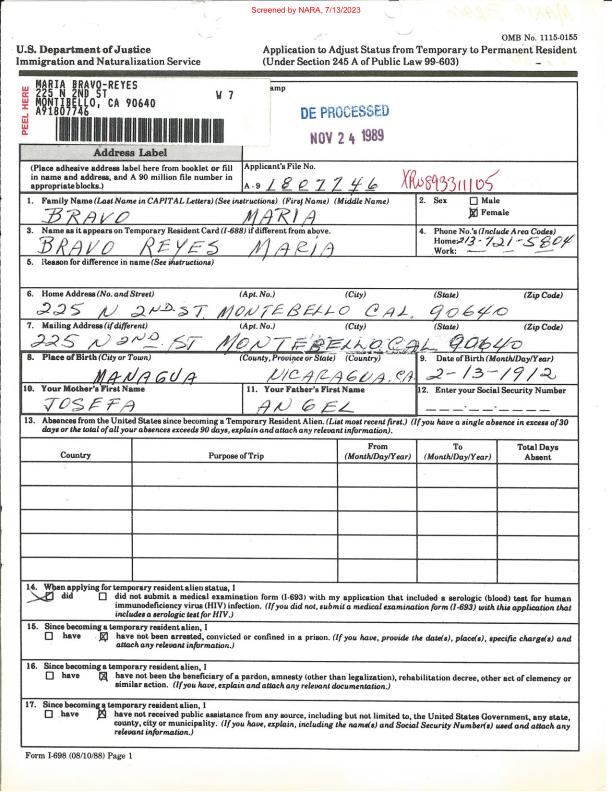 Screened by NARA, 7/13/2023
OMB No. 1115-0155
U.S. Department of Justice
Immigration and Naturalization Service
Application to Adjust Status from Temporary to Permanent Resident
(Under Section 245 A of Public Law 99-603)
PEEL HERE
MARIA BRAVO-REYES
225 N 2ND ST W 7
MONTIBELLO, CA 90640
A91807746
amp
DE PROCESSED
NOV 24 1989
Address Label
(Place adhesive address label here from booklet or fill in name and address, and A 90 million file number in appropriate blocks.)
Applicant's File No.
A - 9 1807746
XRW893311105
1. Family Name (Last Name in CAPITAL Letters) (See instructions) (First Name) (Middle Name)
BRAVO MARIA
2. Sex Male
Female
3. Name as it appears on Temporary Resident Card (I-688) if different from above.
BRAVO REYES MARIA
4. Phone No.'s (Include Area Codes)
Home: 213-721-5804
Work:
5. Reason for difference in name (See instructions)
6. Home Address (No. and Street) (Apt. No.) (City) (State) (Zip Code)
225 N 2ND ST. MONTEBELLO CAL. 90640
7. Mailing Address (if different) (Apt. No.) (City) (State) (Zip Code)
225 N 2ND. ST MONTEBELLO CAL 90640
8. Place of Birth (City or Town) (County, Province or State) (Country)
MANAGUA NICARAGUA. CA
9. Date of Birth (Month/Day/Year)
2-13-1912
10. Your Mother's First Name
JOSEFA
11. Your Father's First Name
ANGEL
12. Enter your Social Security Number
13. Absences from the United States since becoming a Temporary Resident Alien. (List most recent first.) (If you have a single absence in excess of 30
days or the total of all your absences exceeds 90 days, explain and attach any relevant information).
Country Purpose of Trip From (Month/Day/Year) To (Month/Day/Year) Total Days Absent
14. When applying for temporary resident alien status, I
did did not submit a medical examination form (I-693) with my application that included a serologic (blood) test for human
immunodeficiency virus (HIV) infection. (If you did not, submit a medical examination form (I-693) with this application that
includes a serologic test for HIV.)
15. Since becoming a temporary resident alien, I
have have not been arrested, convicted or confined in a prison. (If you have, provide the date(s), place(s), specific charge(s) and
attach any relevant information.)
16. Since becoming a temporary resident alien, I
have have not been the beneficiary of a pardon, amnesty (other than legalization), rehabilitation decree, other act of clemency or
similar action. (If you have, explain and attach any relevant documentation.)
17. Since becoming a temporary resident alien, I
have have not received public assistance from any source, including but not limited to, the United States Government, any state,
county, city or municipality. (If you have, explain, including the name(s) and Social Security Number(s) used and attach any
relevant information.)
Form I-698 (08/10/88) Page 1